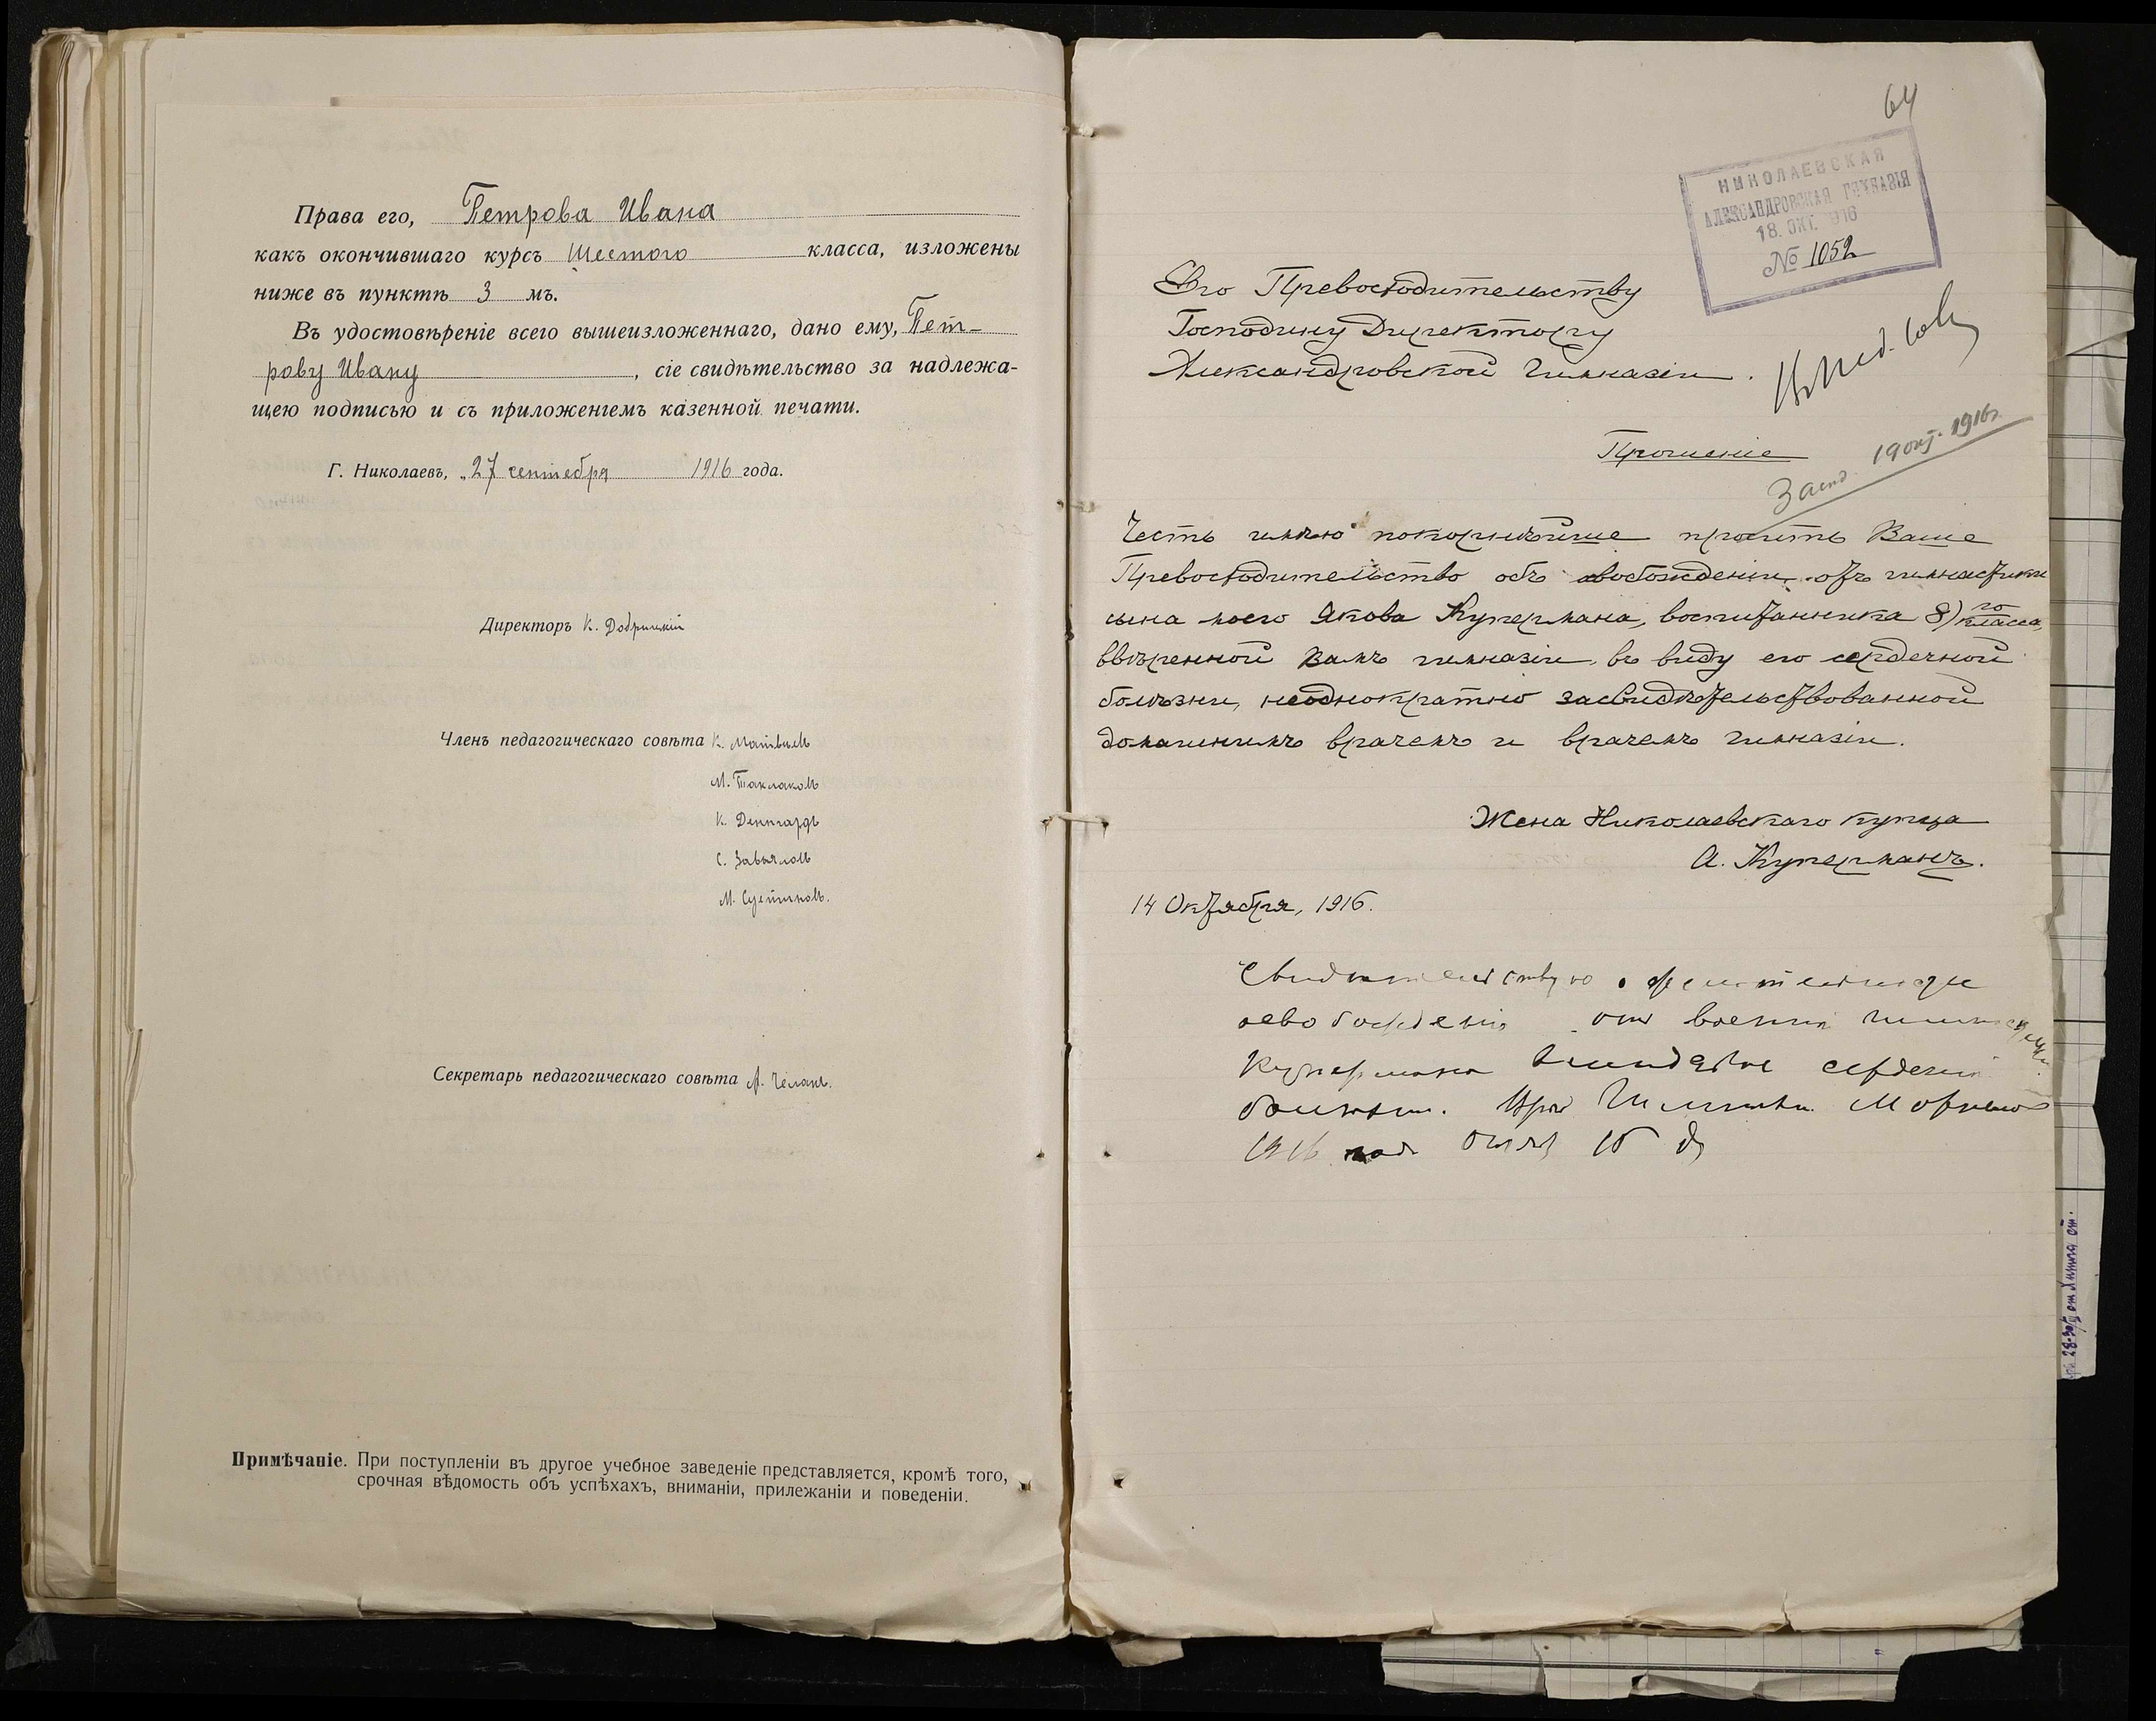 Права его, Петрова Ивана
какъ окончившаго курсъ Шестого класса, изложены
ниже въ пунктѣ 3 мъ.
Въ удостовѣреніе всего вышеизложеннаго, дано ему, Пет-
рову Ивану, сіе свидѣтельство за надлежа-
щею подписью и съ приложеніемъ казенной печати.
Г. Николаевъ, „27 сентября 1916 года.
Директоръ К.
Членъ педагогическаго совѣта К.
М.
К.
С. Завьялов
М.
Секретарь педагогическаго совѣта
Примѣчаніе. При поступленіи въ другое учебное заведеніе представляется, кромѣ того,
срочная вѣдомость объ успѣхахъ, вниманіи, прилежаніи и поведеніи.
64
НИКОЛАЕВСКАЯ
АЛЕКСАНДРОВСКАЯ ГИМНАЗІЯ
18. ОКТ. 1916
№ 1052
Его Превосходительству
Господину Директору
Александровской гимназіи.
Прошеніе
19 окт. 1916 г.
Честь имѣю покорнѣйше просить Ваше
Превосходительство объ освобожденіи отъ гимнастики
сына моего Якова Купермана, воспитанника 8) го класса,
ввѣренной Вамъ гимназіи, въ виду его сердечной
болѣзни, неоднократно засвидѣтельствованной
домашнимъ врачемъ и врачемъ гимназіи.
Жена Николаевскаго купца
А. Куперманъ.
14 Октября, 1916.
Свидѣтельствую о
освобожденія от военной гимнастики
Купермана вслѣдствіе сердечной
болѣзни. Врач
1916 года